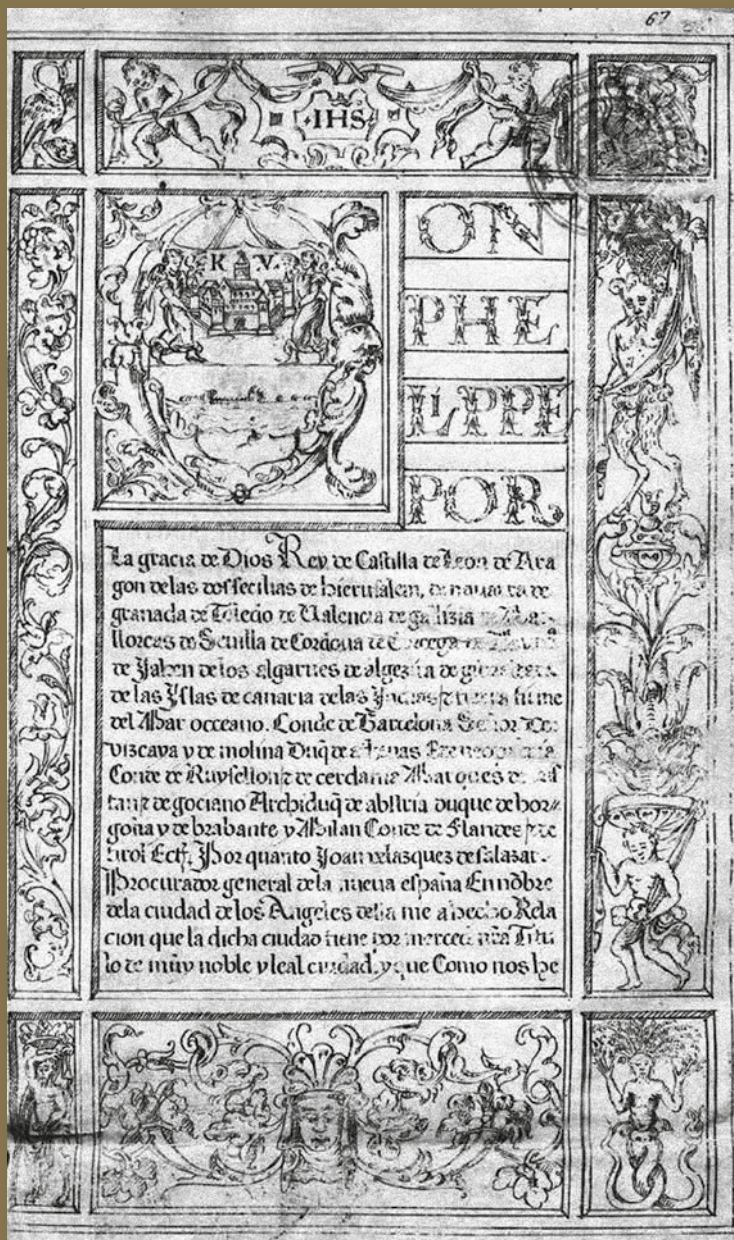 67
IHS
K V
ON
PHE
LIPPE
POR
La gracia de Dios Rey de Castilla de Leon de Ara
gon de las dos secilias de hierusalem, de nauarra de
granada de Toledo de Ualencia de galizia de Ma
llorcas de Seuilla de Cordoua de Corcega de
de Jahen de los algarues de algezira de
de las Yslas de canaria de las Yndias tierra firme
del Mar occeano. Conde de Barcelona Señor De
vizcaya y de molina Duq̃ de Athenas
Conde de Ruysellon z de cerdania Marques de
tan z de gociano Archiduq̃ de abstria duque de bor
goña y de brabante y Milan Conde de Flandes z de
tirol Ectͣ. Por quanto Joan velazquez de salazar.
Procurador general de la nueva españa En nõbre
de la ciudad de los Angeles della me a hecho Rela
cion que la dicha ciudad tiene por merced nrã Titu
lo de muy noble y leal ciudad, y que Como nos he